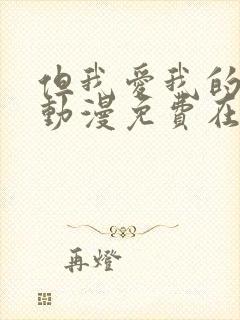 但我愛我的
動漫免費在
再燈